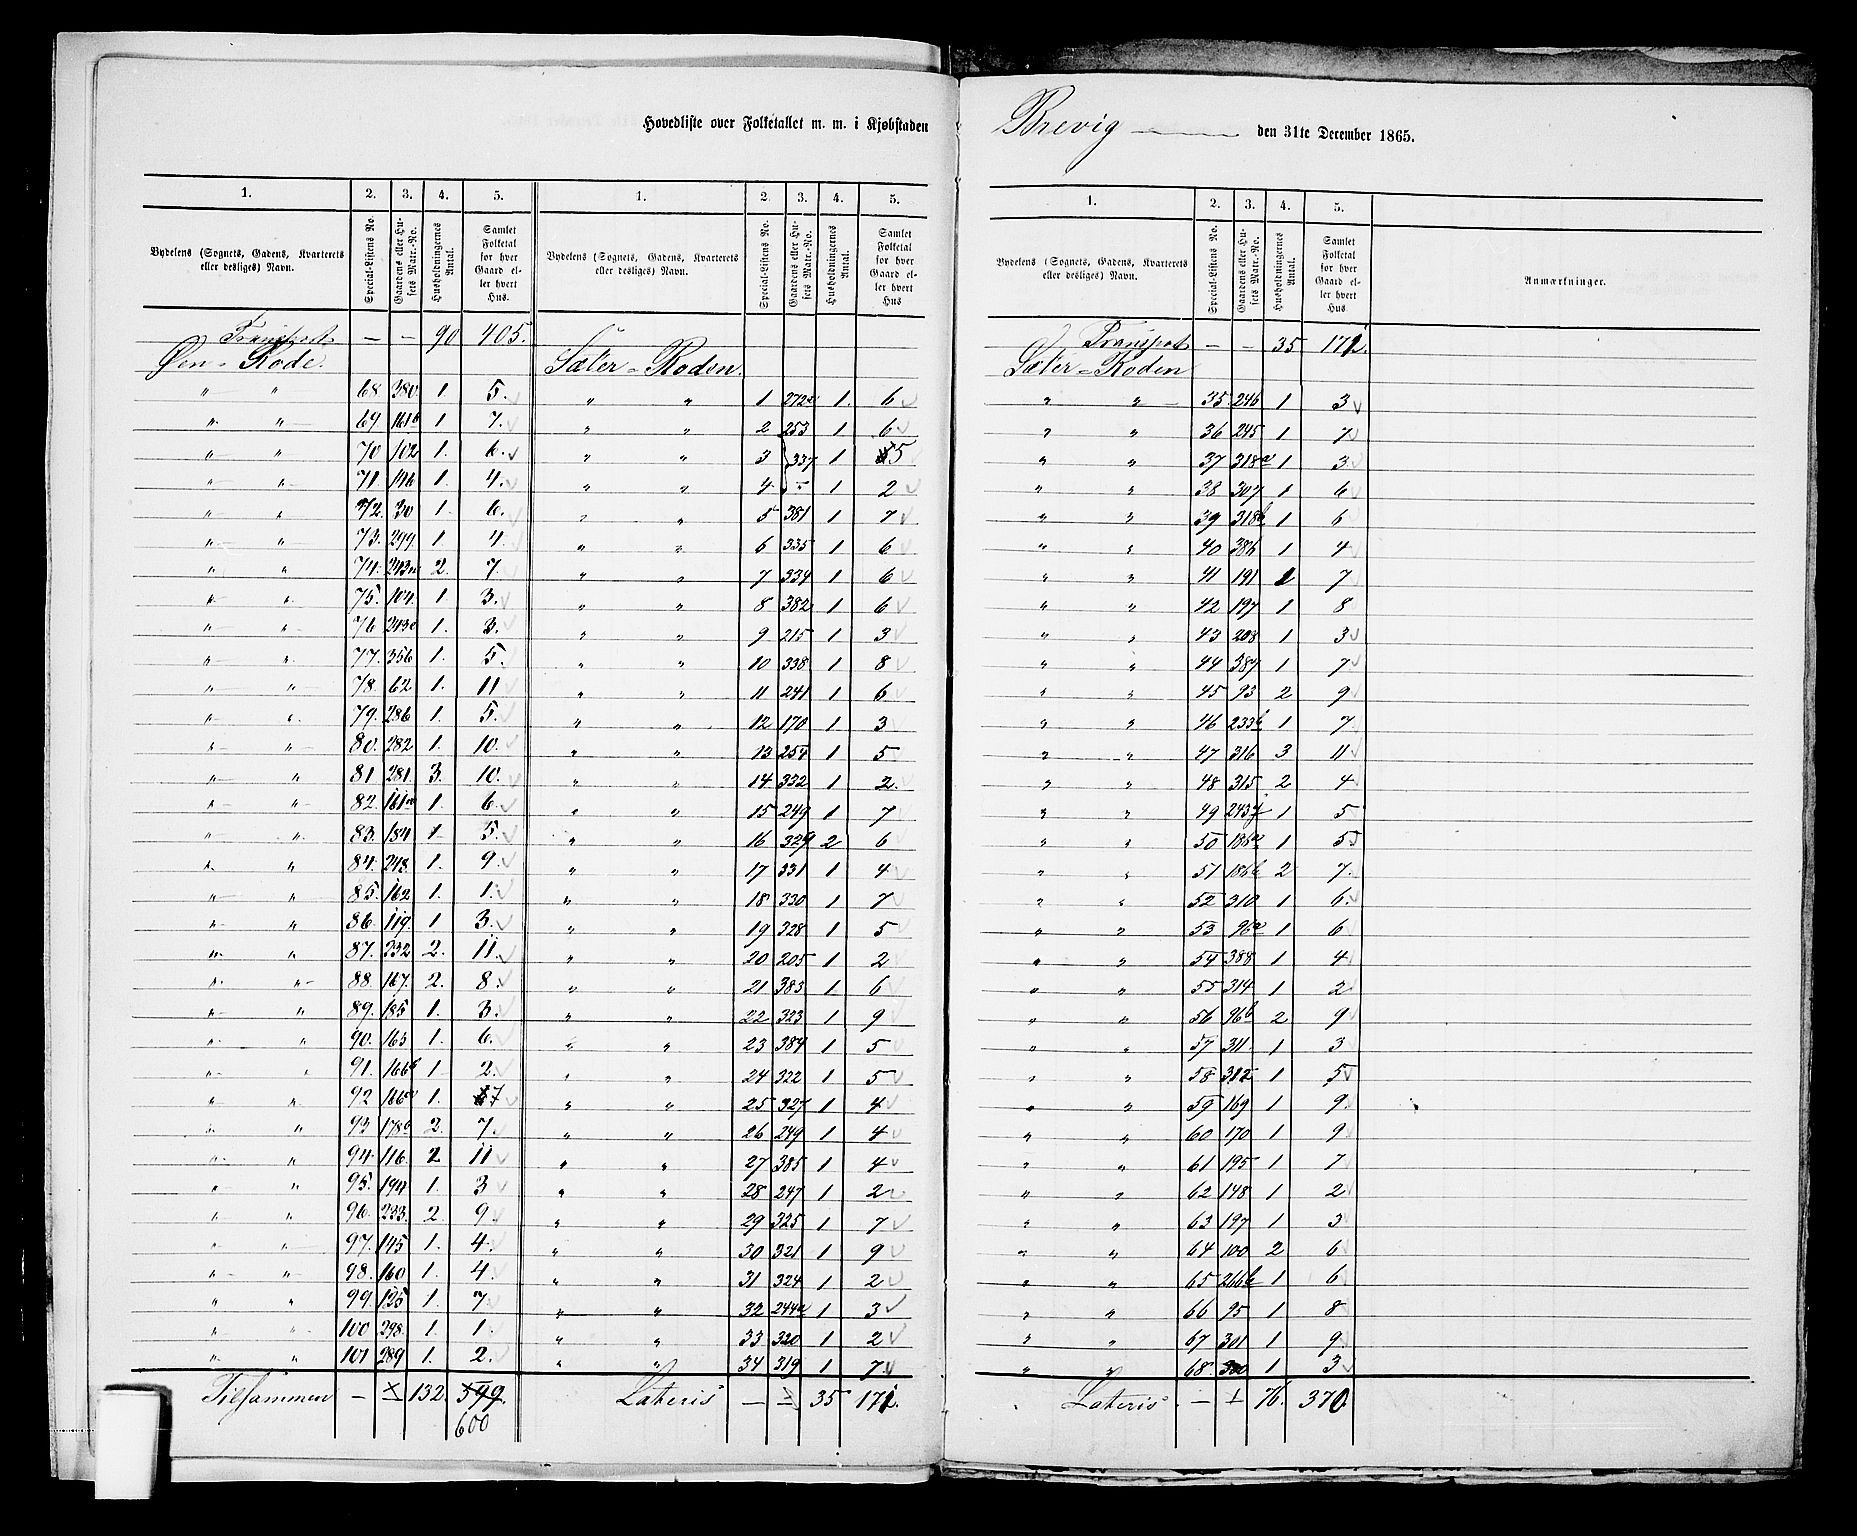 Hovedliste over Folketallet m. m. i Kjøbstaden Brevig den 31te December 1865.
1. 2. 3. 4. 5. 1. 2. 3. 4. 5.
Bydelens (Sognets, Gadens, Kvarterets eller desliges) Navn. Special-Listens No. Gaardens eller Husets Matr.-No. Husholdningernes Antal. Samlet Folketal for hver Gaard eller hvert Hus.
Transport — — 90 405.
Øen-Rode.
" " 68 380. 1. 5.
" " 69. 161b 1 7.
" " 70 102 1. 6.
" " 71. 146 1. 4.
" " 72. 30 1. 6.
" " 73. 299 1 4.
" " 74. 243 2. 7.
" " 75. 104. 1 3.
" " 76 243c 1. 3.
" " 77. 356 1. 5.
" " 78. 62 1. 11
" " 79. 286 1. 5.
" " 80. 282 1. 10.
" " 81 281. 3. 10.
" " 82. 161a 1. 6.
" " 83. 184 1. 5.
" " 84. 248. 1. 9.
" " 85. 162 1. 1.
" " 86. 119. 1 3.
" " 87. 232 2. 11.
" " 88. 167. 2. 8.
" " 89. 185 1. 3.
" " 90. 163 1. 6.
" " 91. 166b 1 2.
" " 92 166a 1. 7
" " 93 178b 2. 7.
" " 94. 116. 2 11
" " 95. 194 1. 3
" " 96. 233. 2. 9
" " 97. 145 1. 4.
" " 98. 160 1. 4.
" " 99 125 1. 7
" " 100 298. 1. 1.
" " 101 289 1. 2.
Tilsammen — 132. 599.
600
Bydelens (Sognets, Gadens, Kvarterets eller desliges) Navn. Special-Listens No. Gaardens eller Husets Matr.-No. Husholdningernes Antal. Samlet Folketal for hver Gaard eller hvert Hus
Sæter-Roden.
" " 1 272a 1. 6
" " 2 253 1 6
" " 3 337 1 5
" " 4. " 1 2
" " 5 381 1 7
" " 6 335 1 6
" " 7 334 1 6
" " 8 382 1 6
" " 9 215 1 3
" " 10 338 1 8
" " 11 241 1 6
" " 12 170 1 3
" " 13 254 1 5
" " 14 332 1 2.
" " 15 249 1 7
" " 16 329 2 6
" " 17 331 1 4
" " 18 330 1 7
" " 19 328 1 5
" " 20 205 1 2
" " 21 383 1 6
" " 22 323 1 9
" " 23 384 1 5
" " 24 322 1 5
" " 25 327 1 4
" " 26 249 1 4
" " 27 385 1 4
" " 28 247 1 2
" " 29 325 1 7
" " 30 321 1 9
" " 31 324 1 2
" " 32 244a 1 3
" " 33 320 1 2
" " 34 319 1 7
Lateris — 35 171.
1. 2. 3. 4. 5.
Bydelens (Sognets, Gadens, Kvarterets eller desliges) Navn. Special-Listens No. Gaardens eller Husets Matr.-No. Husholdningernes Antal. Samlet Folketal for hver Gaard eller hvert Hus Anmærkninger.
Transport — — 35 171.
Sæter-Roden
" " 35. 246 1 3
" " 36 245 1 7
" " 37 318a 1 3
" " 38 307 1 6
" " 39 318b 1 6
" " 40 386 1 4
" " 41 191 1 7
" " 42 197 1 8
" " 43 208 1 3
" " 44 387 1 7
" " 45 93 2 9
" " 46 233b 1 7
" " 47 316 3 11
" " 48 315 2 4
" " 49 243f 1 5
" " 50 186a 1 5
" " 51 186b 2 7.
" " 52 310 1 6.
" " 53 96a 1 6
" " 54 388 1 4
" " 55 314 1 2
" " 56 96b 2 9
" " 57 311. 1 3
" " 58 312 1 5
" " 59 169 1 9.
" " 60 170 1 9
" " 61 195 1 7
" " 62 148 1 2
" " 63 197 1 3
" " 64 100 2 6
" " 65 266b 1 6
" " 66 95 1 8
" " 67 301 1 9.
" " 68. 300 1 3
Lateris — 76. 370.